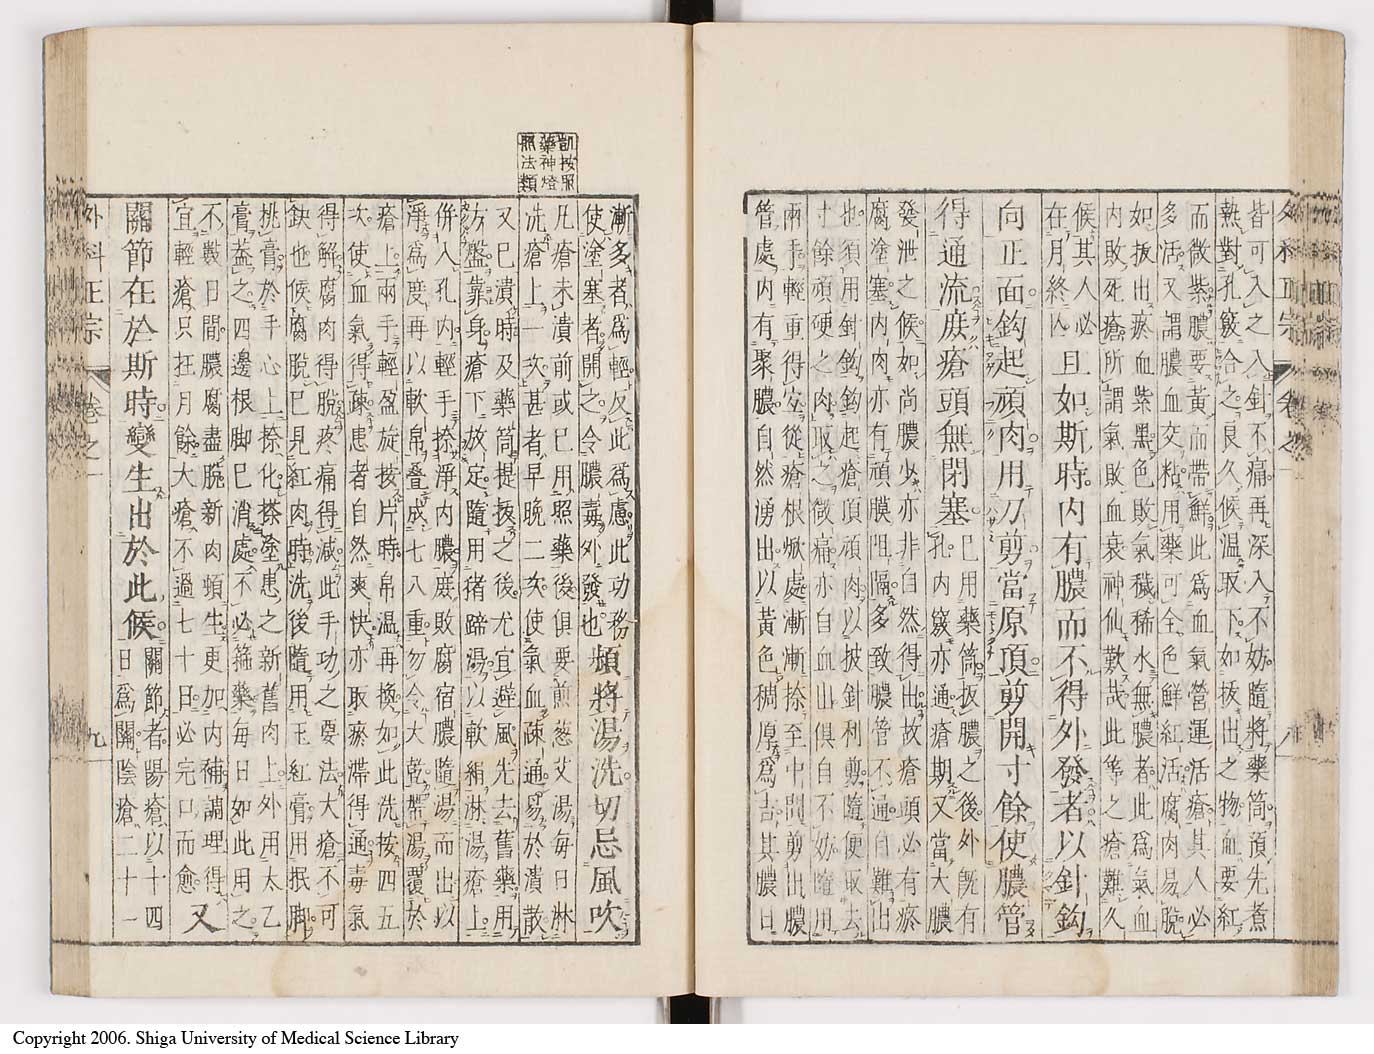 外科正宗 卷之一
皆可入之入針不痛再深入不妨隨將藥筒預先煮
熱對孔竅合之良久候溫取下如拔出之物血要紅
而微紫膿要黃而帶鮮此為血氣營運活瘡其人必
多活又謂膿血交粘用藥可全色鮮紅活腐肉易脫
如拔出瘀血紫黑色敗氣穢稀水無膿者此為氣血
內敗死瘡所謂氣敗血衰神仙歎哉此等之瘡難久
候其人必
在月終亡
且如斯時內有膿而不得外發者以針鈎
向正面鈎起頑肉用刀剪當原頂剪開寸餘使膿管
得通流庶瘡頭無閉塞
已用藥筒拔膿之後外既有
孔內竅亦通瘡期又當大膿
發泄之候如尚膿少亦非自然得出故瘡頭必有瘀
腐塗塞內肉亦有頑膜阻隔多致膿管不通自難出
也須用針鈎鈎起瘡頂頑肉以披針利剪隨便取去
寸餘頑硬之肉取之微痛亦自血出俱自不妨隨用
兩手輕重得宜從瘡根焮處漸漸捺至中間剪出膿
管處內有聚膿自然湧出以黃色稠厚為吉其膿日
凱按照
藥神燈
照法類
漸多者為輕反此為慮此功務
使塗塞者開之令膿毒外發也
頻將湯洗切忌風吹
凡瘡未潰前或已用照藥後俱要煎葱艾湯每日淋
洗瘡上一次甚者早晚二次使氣血疎通易於潰散
又已潰時及藥筒提拔之後尤宜避風先去舊藥用
方盤靠身瘡下放定隨用猪蹄湯以軟絹淋湯瘡上
併入孔內輕手捺淨內膿庶敗腐宿膿隨湯而出以
淨為度再以軟帛疊成七八重勿令大乾帶湯覆於
瘡上兩手輕盈旋按片時帛溫再換如此洗按四五
次使血氣得疎患者自然爽快亦取瘀滯得通毒氣
得解腐肉得脫疼痛得減此手功之要法大瘡不可
缺也候腐脫已見紅肉時洗後隨用玉紅膏用抿脚
挑膏於手心上捺化搽塗患之新舊肉上外用太乙
膏蓋之四邊根脚已消處不必箍藥每日如此用之
不數日間膿腐盡脫新肉頓生更加內補調理得
宜輕瘡只在月餘大瘡不過七十日必完口而愈
又
關節在於斯時變生出於此候
關節者陽瘡以十四
日為關陰瘡二十一
外科正宗 卷之一 九
Copyright 2006. Shiga University of Medical Science Library